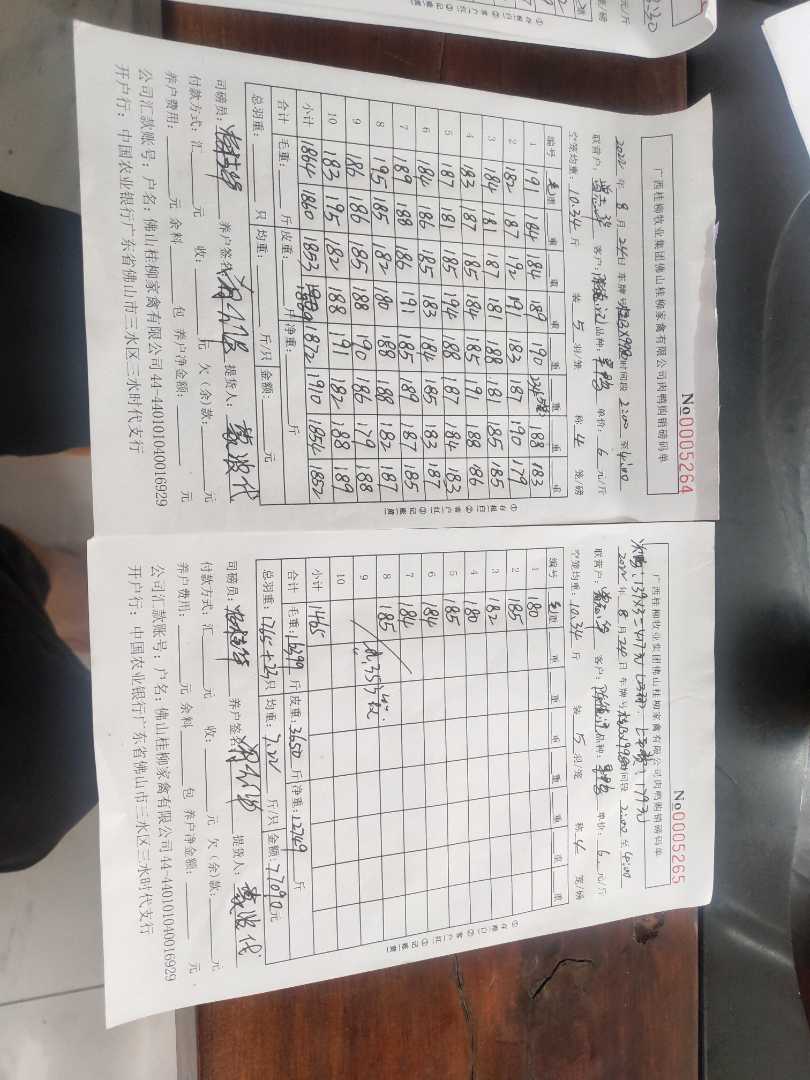 广西桂柳牧业集团佛山桂柳家禽有限公司肉鸭购销磅码单
№0005264
2022 年 8 月 24日 车牌号 时间段 2:00 至 4:00
联营户: 客户: 品种: 单价: 6 元/斤
空笼均重: 10.34 斤 装 5 羽/笼 称 4 笼/磅
编号 毛重 重 重 重 重 重 重 重
1 191 184 184 189 190 188 183
2 182 187 192 191 183 187 190 179
3 184 181 187 181 188 181 185 185
4 183 187 185 184 185 191 188 186
5 187 181 185 194 188 187 184 183
6 184 186 185 183 184 185 183 187
7 189 188 186 191 185 189 187 185
8 195 185 182 180 188 188 182 187
9 186 186 185 188 190 186 179 188
10 183 195 182 188 191 182 188 189
小计 1864 1860 1853 1872 1910 1854 1852
合计 毛重: 斤 皮重: 斤 净重: 斤
总羽重: 只 均重: 斤/只 金额: 元
司磅员: 养户签名: 提货人:
付款方式: 汇 元 收: 元 欠(余)款: 元
养户费用: 元 余料 包 养户净金额: 元
公司汇款账号: 户名: 佛山桂柳家禽有限公司 44-440101040016929
开户行: 中国农业银行广东省佛山市三水区三水时代支行
①存根(白) ②客户(红) ③记账(黄)
广西桂柳牧业集团佛山桂柳家禽有限公司肉鸭购销磅码单
№0005265
次鸭: 139X3=417元(23羽).
2022 年 8 月 24日 车牌号 时间段 2:00 至 4:00
联营户: 客户: 品种: 单价: 6 元/斤
空笼均重: 10.34 斤 装 5 羽/笼 称 4 笼/磅
编号 毛重 重 重 重 重 重 重 重
1 180
2 185
3 182
4 180
5 185
6 184
7 184
8 185
9
10
小计 1465
合计 毛重: 16399 斤 皮重: 3650 斤 净重: 12749 斤
总羽重: 1765+23 只 均重: 7.22 斤/只 金额: 77090 元
司磅员: 养户签名: 提货人:
付款方式: 汇 元 收: 元 欠(余)款: 元
养户费用: 元 余料 包 养户净金额: 元
公司汇款账号: 户名: 佛山桂柳家禽有限公司 44-440101040016929
开户行: 中国农业银行广东省佛山市三水区三水时代支行
①存根(白) ②客户(红) ③记账(黄)